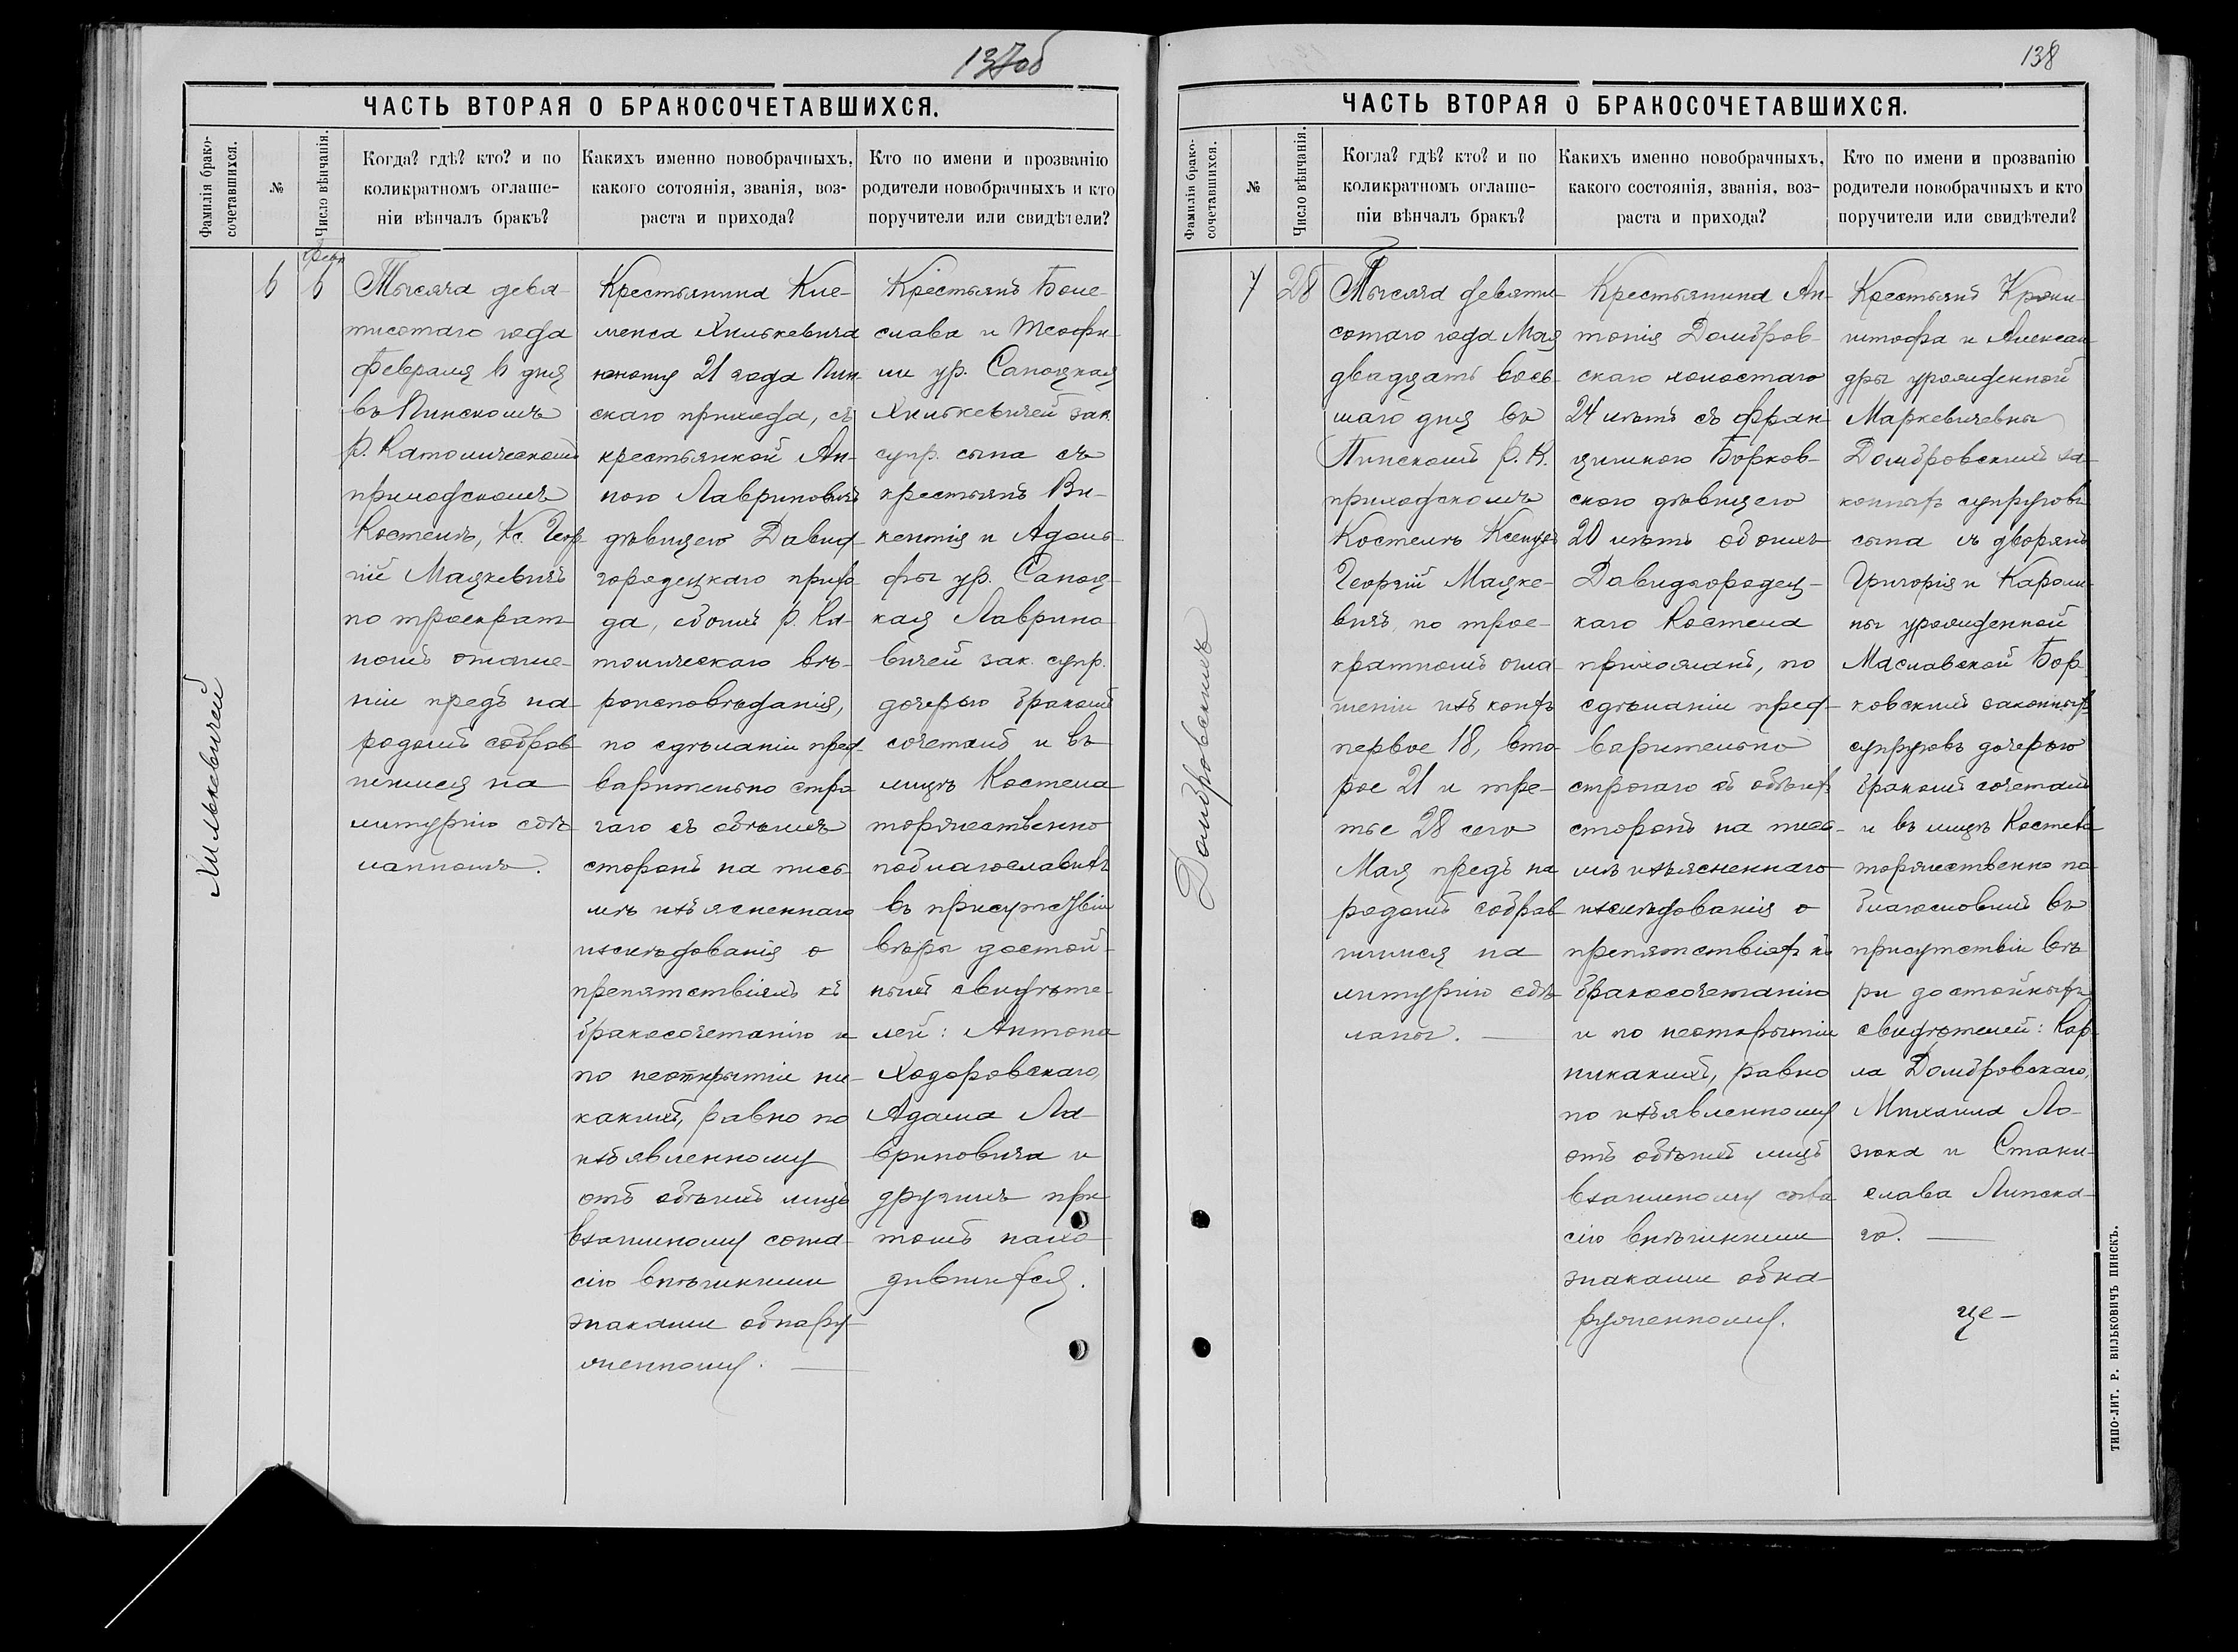 137об
ЧАСТЬ ВТОРАЯ О БРАКОСОЧЕТАВШИХСЯ.
Фамилія брако-
сочетавшихся.
№
Число вѣнчанія.
Когда? гдѣ? кто? и по
коликратномъ оглаше-
ніи вѣнчалъ бракъ?
Какихъ именно новобрачныхъ,
какого сотоянія, званія, воз-
раста и прихода?
Кто по имени и прозванію
родители новобрачныхъ и кто
поручители или свидѣтели?
Хмилькевичей
6
Февр
6
Тысяча девя-
тисотаго года
Февраля 6 дня
въ Пинскомъ
Р. Католическомъ
приходскомъ
Костелѣ, Кс. Геор-
гій Мацкевичъ
по троекрат-
номъ оглаше-
ніи предъ на-
родомъ собрав-
шимся на
литургію сдѣ-
ланномъ.
Крестьянина Кле-
менса Хмилькевича
юношу 21 года Пин-
скаго прихода, съ
крестьянкой Ан-
ною Лавриновичъ
дѣвицею Давид-
городецкаго прихо-
да, обоихъ Р. Ка-
толическаго вѣ-
роисповѣданія,
по сдѣланіи пред-
варительно стро-
гаго съ обѣихъ
сторонъ на пись-
мѣ изъясненнаго
изслѣдованія о
препятствіяхъ къ
бракосочетанію и
по неоткрытіи ни-
какихъ, равно по
изъявленному
отъ обѣихъ лицъ
взаимному согла-
сію внѣшними
знаками обнару-
женному.
Крестьянъ Боле-
слава и Теофи-
ли ур. Сапоцкая
Хмилькевичей зак.
супр. сына съ
крестьянъ Ви-
кентія и Адоль-
фы ур. Сапоц-
кая Лаврино-
вичей зак. супр.
дочерью бракомъ
сочеталъ и въ
лицѣ Костела
торжественно
поблагославилъ
въ присутствіи
вѣры достой-
ныхъ свидѣте-
лей: Антона
Ходоровскаго,
Адама Ла-
вриновича и
другихъ при
томъ нахо-
дившихся.
138
ЧАСТЬ ВТОРАЯ О БРАКОСОЧЕТАВШИХСЯ.
Фамилія брако-
сочетавшихся.
№
Число вѣнчанія.
Когда? гдѣ? кто? и по
коликратномъ оглаше-
ніи вѣнчалъ бракъ?
Какихъ именно новобрачныхъ,
какого состоянія, званія, воз-
раста и прихода?
Кто по имени и прозванію
родители новобрачныхъ и кто
поручители или свидѣтели?
Домбровскихъ
7
28
Тысяча девяти-
сотаго года Мая
двадцать вось-
маго дня въ
Пинскомъ Р. К.
приходскомъ
Костелѣ Ксендзъ
Георгій Мацке-
вичъ, по трое-
кратномъ огла-
шеніи изъ коихъ
первое 18, вто-
рое 21 и тре-
тье 28 сего
Мая предъ на-
родомъ собрав-
шимся на
литургію сдѣ-
ланы.
Крестьянина Ан-
тонія Домбров-
скаго холостаго
24 лѣтъ съ Фран-
цишкою Борков-
скою дѣвицею
20 лѣтъ обоихъ
Давидгородец-
каго Костела
прихожанъ, по
сдѣланіи пред-
варительно
строгаго съ обѣихъ
сторонъ на пись-
мѣ изъясненнаго
изслѣдованія о
препятствіяхъ къ
бракосочетанію
и по неоткрытіи
никакихъ, равно
по изъявленному
отъ обѣихъ лицъ
взаимному согла-
сію внѣшними
знаками обна-
руженному.
Крестьянъ Крыш-
штофа и Алексан-
дры урожденной
Маркевичевны
Домбровскихъ за-
конныхъ супруговъ
сына съ дворянъ
Григорія и Кароли-
ны урожденной
Маславской Бор-
ковскихъ законныхъ
супруговъ дочерью
бракомъ сочеталъ
и въ лицѣ Костела
торжественно по-
благословилъ въ
присутствіи вѣ-
ры достойныхъ
свидѣтелей: Кар-
ла Домбровскаго,
Михаила Ло-
зюка и Стани-
слава Липска-
го.
це-
ТИПО-ЛИТ. Р. ВИЛЬКОВИЧЪ ПИНСКЪ.